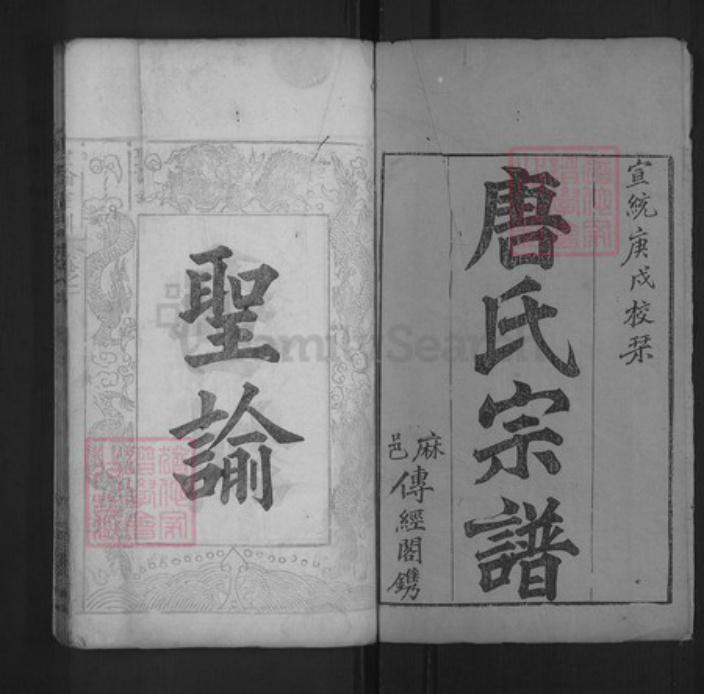 宣統庚戌校栞
唐氏宗譜
麻邑傳經閣鐫
聖諭
FamilySearch